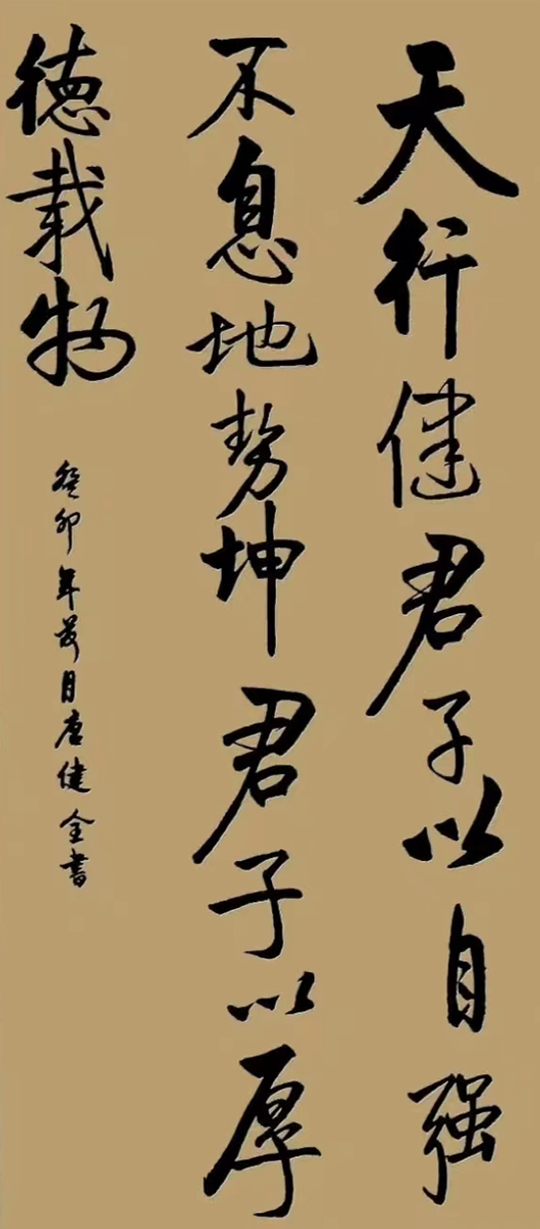 天行健君子以自强
不息地势坤君子以厚
德载物
癸卯年夏月唐健全书